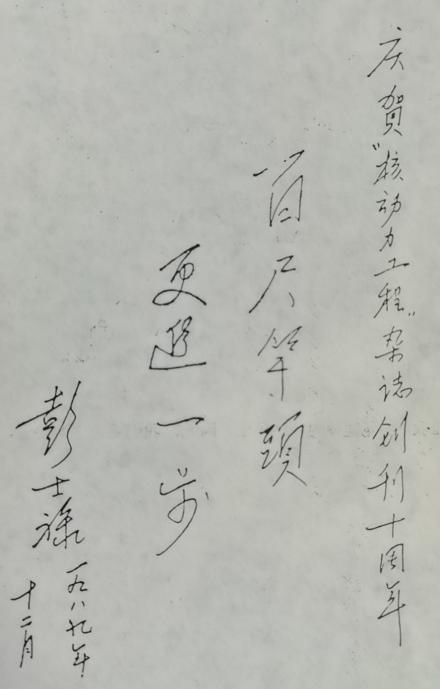 庆賀“核动力工程”杂誌创刊十周年
百尺竿頭
更進一步
彭士禄
一九八九年
十二月